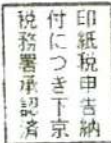 印紙税申告納
付につき下京
税務署承認済